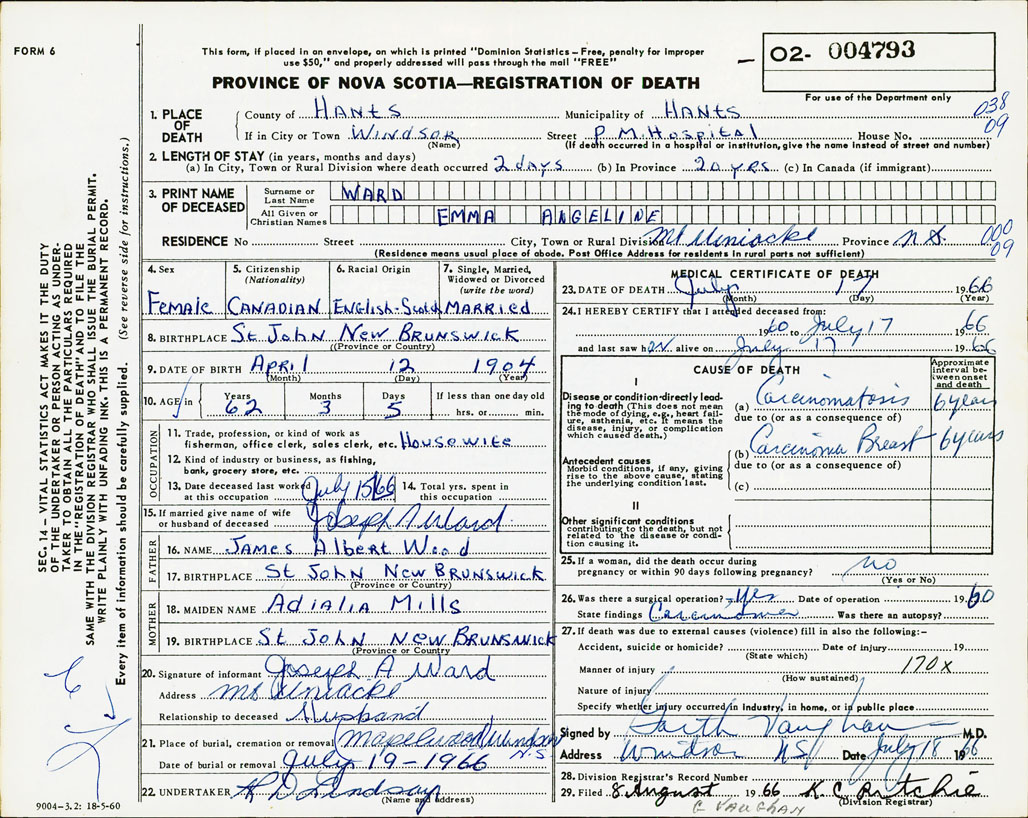 FORM 6
This form, if placed in an envelope, on which is printed "Dominion Statistics – Free, penalty for improper
use $50," and properly addressed will pass through the mail "FREE"
PROVINCE OF NOVA SCOTIA—REGISTRATION OF DEATH
02- 004793
For use of the Department only
1. PLACE OF DEATH
County of HANTS Municipality of HANTS 038
If in City or Town WINDSOR Street P.M. Hospital House No. 09
(Name) (If death occurred in a hospital or institution, give the name instead of street and number)
2. LENGTH OF STAY (in years, months and days)
(a) In City, Town or Rural Division where death occurred 2 days (b) In Province 20 yrs (c) In Canada (if immigrant)
3. PRINT NAME OF DECEASED
Surname or Last Name WARD
All Given or Christian Names EMMA ANGELINE
RESIDENCE No Street City, Town or Rural Division Mt Uniacke Province N.S. 000 09
(Residence means usual place of abode. Post Office Address for residents in rural parts not sufficient)
4. Sex
Female
5. Citizenship (Nationality)
CANADIAN
6. Racial Origin
English-Scotch
7. Single, Married, Widowed or Divorced (write the word)
MARRIED
8. BIRTHPLACE St John New Brunswick
(Province or Country)
9. DATE OF BIRTH April 12 1904
(Month) (Day) (Year)
10. AGE in Years 62 Months 3 Days 5 If less than one day old hrs. or min.
OCCUPATION
11. Trade, profession, or kind of work as fisherman, office clerk, sales clerk, etc. Housewife
12. Kind of industry or business, as fishing, bank, grocery store, etc.
13. Date deceased last worked at this occupation July 15/66 14. Total yrs. spent in this occupation
15. If married give name of wife or husband of deceased Joseph A Ward
FATHER
16. NAME James Albert Wood
17. BIRTHPLACE St John New Brunswick
(Province or Country)
MOTHER
18. MAIDEN NAME Adialia Mills
19. BIRTHPLACE St John New Brunswick
(Province or Country)
20. Signature of informant Joseph A Ward
Address Mt Uniacke
Relationship to deceased Husband
21. Place of burial, cremation or removal Mapelwood Windsor N.S.
Date of burial or removal July 19-1966
22. UNDERTAKER R D Lindsay
(Name and address)
9004-3.2: 18-5-60
MEDICAL CERTIFICATE OF DEATH
23. DATE OF DEATH July 17 1966
(Month) (Day) (Year)
24. I HEREBY CERTIFY that I attended deceased from:
1960 to July 17 1966
and last saw her alive on July 17 1966
CAUSE OF DEATH
Approximate interval between onset and death
I
Disease or condition directly leading to death (This does not mean the mode of dying, e.g., heart failure, asthenia, etc. It means the disease, injury, or complication which caused death.)
(a) Carcinomatosis 6 years
due to (or as a consequence of)
Antecedent causes
Morbid conditions, if any, giving rise to the above cause, stating the underlying condition last.
(b) Carcinoma Breast 6 years
due to (or as a consequence of)
(c)
II
Other significant conditions contributing to the death, but not related to the disease or condition causing it.
25. If a woman, did the death occur during pregnancy or within 90 days following pregnancy? no
(Yes or No)
26. Was there a surgical operation? Yes Date of operation 1960
State findings Carcinoma Was there an autopsy?
27. If death was due to external causes (violence) fill in also the following:–
Accident, suicide or homicide? Date of injury 19
(State which)
Manner of injury 170X
(How sustained)
Nature of injury
Specify whether injury occurred in industry, in home, or in public place
Signed by Garth Vaughan M.D.
Address Windsor NS Date July 18 1966
28. Division Registrar's Record Number
29. Filed 8 August 1966 K C Ritchie
(Division Registrar)
G VAUGHAN
SEC. 14 – VITAL STATISTICS ACT MAKES IT THE DUTY
OF THE UNDERTAKER OR PERSON ACTING AS UNDER-
TAKER TO OBTAIN ALL THE PARTICULARS REQUIRED
IN THE "REGISTRATION OF DEATH" AND TO FILE THE
SAME WITH THE DIVISION REGISTRAR WHO SHALL ISSUE THE BURIAL PERMIT.
WRITE PLAINLY WITH UNFADING INK. THIS IS A PERMANENT RECORD.
Every item of information should be carefully supplied. (See reverse side for instructions.)